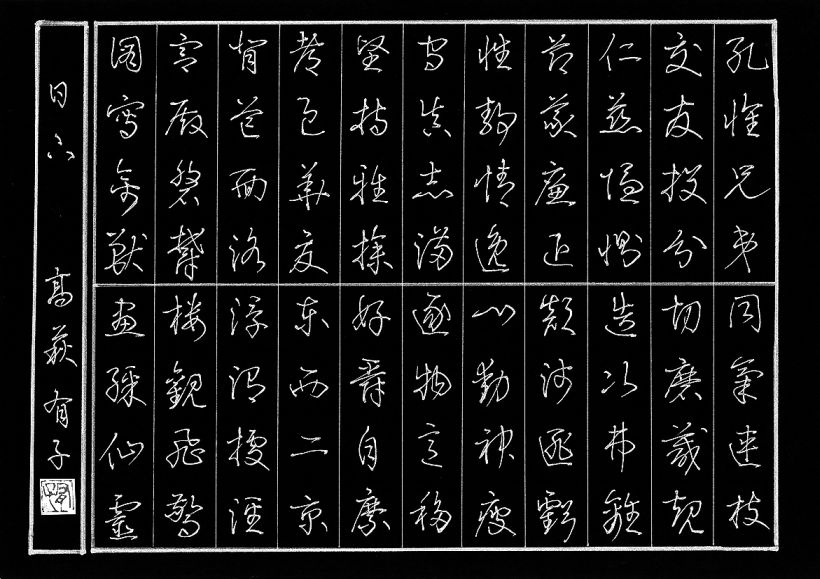 孔懷兄弟同氣連枝
交友投分切磨箴規
仁慈隱惻造次弗離
節義廉退顛沛匪虧
性靜情逸心動神疲
守真志滿逐物意移
堅持雅操好爵自縻
都邑華夏東西二京
背芒面洛浮渭據涇
宮殿盤鬱樓觀飛驚
圖寫禽獸畫綵仙靈
日 高萩有子